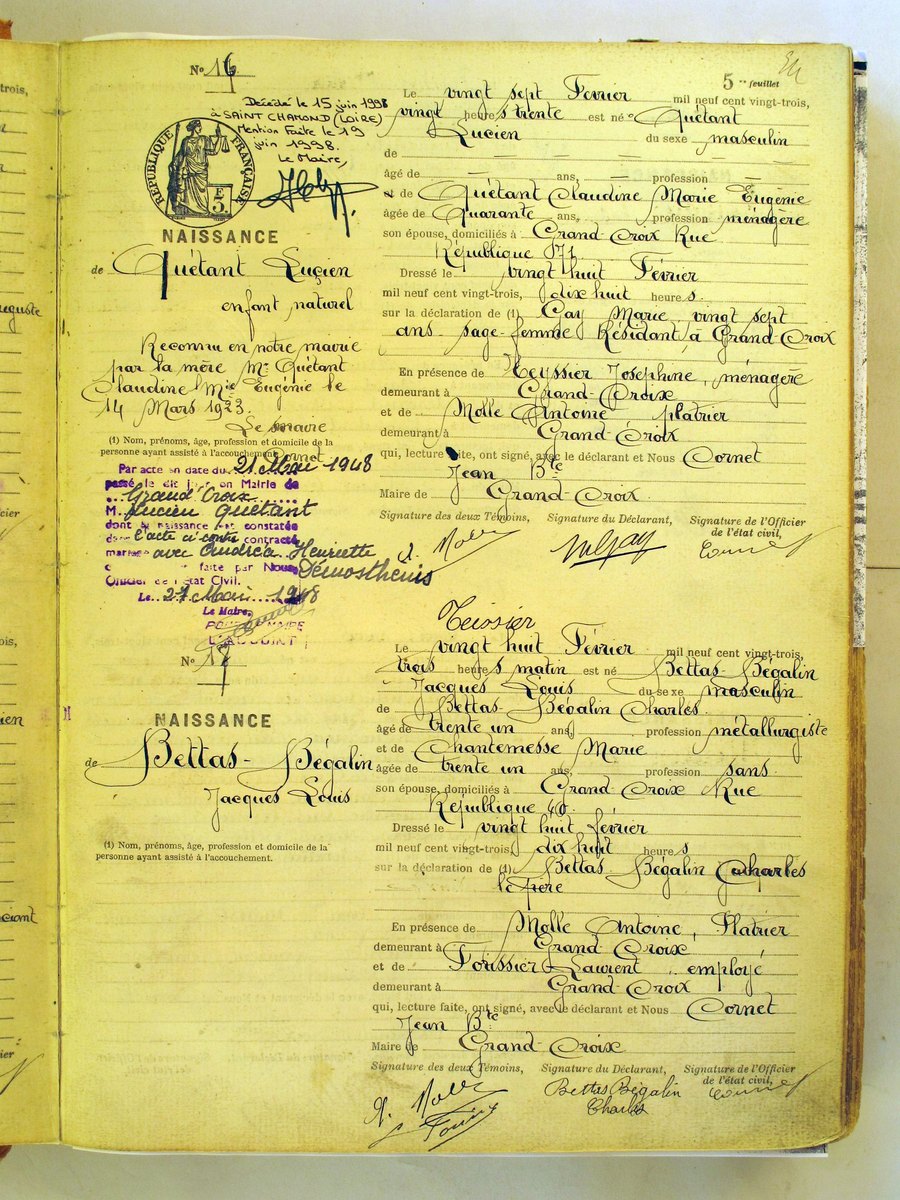 5 feuillet
Nº 16
Décédé le 15 juin 1998
à SAINT CHAMOND (LOIRE)
Mention faite le 19
juin 1998.
Le Maire,
RÉPUBLIQUE FRANÇAISE
NAISSANCE
de Quétant Lucien
enfant naturel
Reconnu en notre mairie
par la mère Mme Quétant
Claudine Mie Eugénie le
14 Mars 1923.
Le maire
Cornet
(1) Nom, prénoms, âge, profession et domicile de la
personne ayant assisté à l'accouchement.
Par acte en date du 21 Mai 1948
passé le dit jour en Mairie de
Grand'Croix
M. Lucien Quétant
dont la naissance est constatée
dans l'acte ci contre contracté
mariage avec Andréa Henriette
Démosthénis
faite par Nous,
Officier de l'État Civil.
Le 27 Mai 1948
Le Maire,
L'ADJOINT
Le vingt sept Février mil neuf cent vingt-trois,
vingt heures trente est né Quétant
Lucien du sexe masculin
de — — —
âgé de — ans, — profession —
et de Quétant Claudine Marie Eugénie
âgée de Quarante ans, profession ménagère
son épouse, domiciliés à Grand Croix Rue
République 871
Dressé le vingt huit Février
mil neuf cent vingt-trois, dix huit heures.
sur la déclaration de (1) Gay Marie vingt sept
ans sage-femme Résidant à Grand-Croix
En présence de Teyssier Joséphine, ménagère
demeurant à Grand-Croix
et de Molle Antoine platrier
demeurant à Grand-Croix
qui, lecture faite, ont signé, avec le déclarant et Nous Cornet
Jean Bte
Maire de Grand-Croix.
Signature des deux Témoins, Signature du Déclarant, Signature de l'Officier
de l'état civil,
A. Molle Gay Cornet
Teissier
Nº 17
NAISSANCE
de Bettas-Bégalin
Jacques Louis
(1) Nom, prénoms, âge, profession et domicile de la
personne ayant assisté à l'accouchement.
Le vingt huit Février mil neuf cent vingt-trois,
trois heures matin est né Bettas-Bégalin
Jacques Louis du sexe masculin
de Bettas-Bégalin Charles.
âgé de trente un ans, profession métallurgiste
et de Chantemesse Marie
âgée de trente un ans, profession sans.
son épouse, domiciliés à Grand Croix Rue
République 40.
Dressé le vingt huit février
mil neuf cent vingt-trois, dix huit heures
sur la déclaration de (1) Bettas-Bégalin Charles
le père
En présence de Molle Antoine, Platrier
demeurant à Grand Croix
et de Forissier Laurent employé
demeurant à Grand-Croix
qui, lecture faite, ont signé, avec le déclarant et Nous Cornet
Jean Bte
Maire de Grand-Croix
Signature des deux Témoins, Signature du Déclarant, Signature de l'Officier
de l'état civil,
A. Molle Bettas Bégalin Cornet
Charles